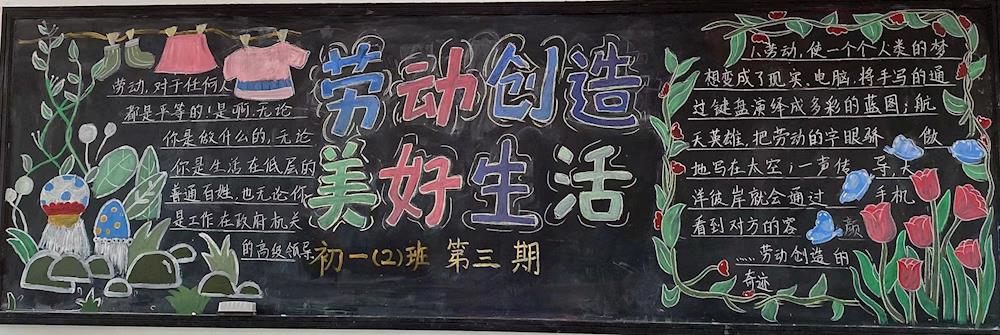 劳动,对于任何人
都是平等的!是啊,无论
你是做什么的,无论
你是生活在低层的
普通百姓,也无论你
是工作在政府机关
的高级领导
劳动创造
美好生活
初一(2)班 第三期
1、劳动,使一个个人类的梦
想变成了现实、电脑,将手写的通
过键盘演绎成多彩的蓝图;航
天英雄,把劳动的字眼骄 傲
地写在太空;一声传 导,大
洋彼岸就会通过 手机
看到对方的容 颜
……劳动创造的
奇迹